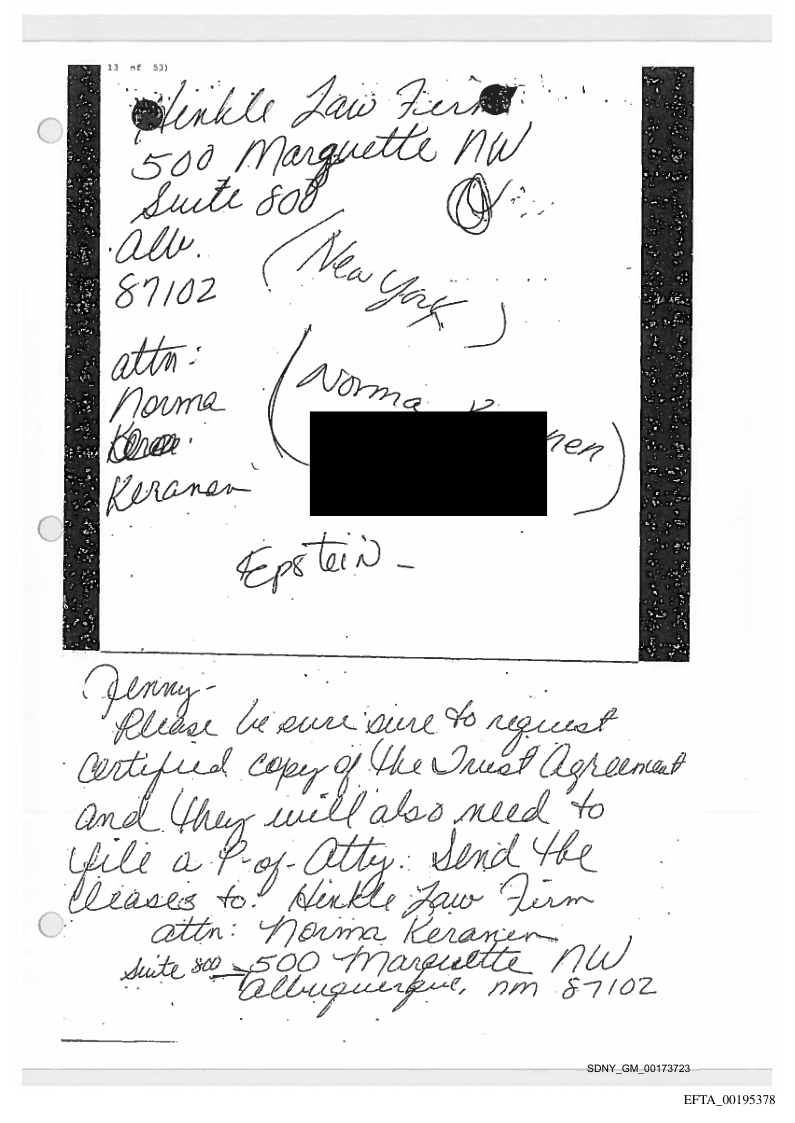 13 of 53)
Hinkle Law Firm
500 Marquette NW
Suite 800
Alb.
87102
(New York)
attn:
Norma
Keranen
(Norma
nen)
Epstein -
Jenny-
Please be sure sure to request
certified copy of the Trust Agreement
and they will also need to
file a P-of-Atty. Send the
leases to: Hinkle Law Firm
attn: Norma Keranen
Suite 800 500 Marquette NW
Albuquerque, nm 87102
SDNY_GM_00173723
EFTA_00195378